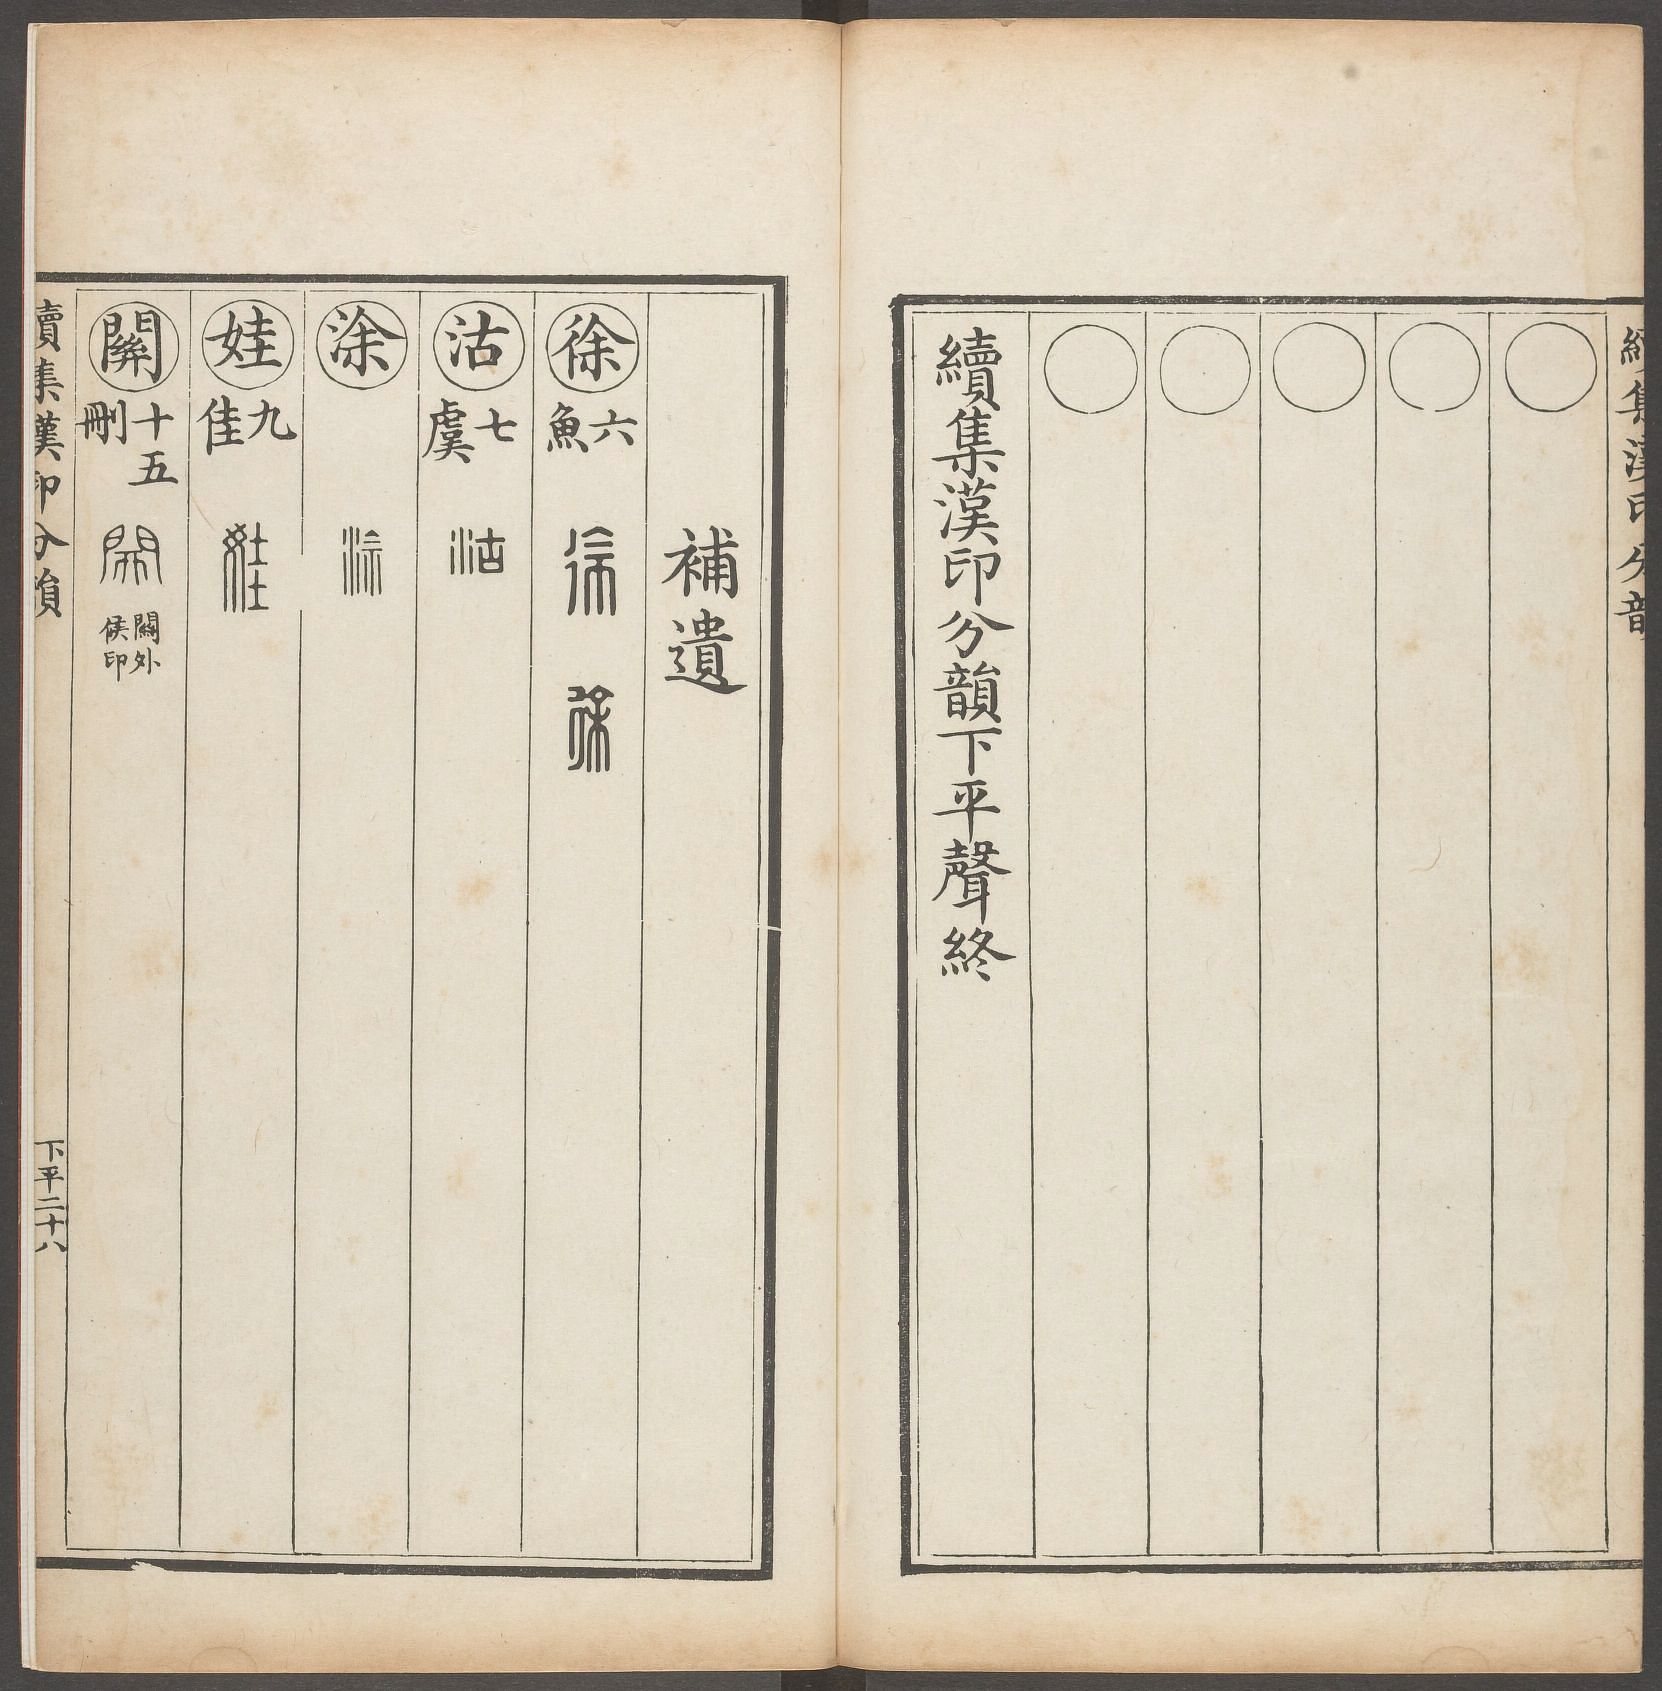 續集漢印分韻
續集漢印分韻下平聲終
補遺
徐 六魚 徐 徐
沽 七虞 沽
涂 涂
娃 九佳 娃
關 十五刪 關 關外侯印
續集漢印分韻 下平二十八